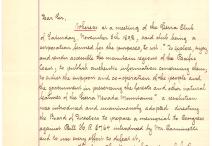 Dear Sir,
Whereas at a meeting of the Sierra Club
of Saturday November 5th 1892, said club being a
corporation formed for the purposes, to wit: "To explore, enjoy
and render accessible the mountain regions of the Pacific
Coast; to publish authentic information concerning them;
to enlist the support and co-operation of the people and
the government in preserving the forests and other natural
features of the Sierra Nevada Mountains" a resolution
was introduced and unanimously adopted directing
the Board of Directors to prepare a memorial to Congress
against Bill H R 5764 introduced by Mr Caminetti
and to use every effort to defeat it,